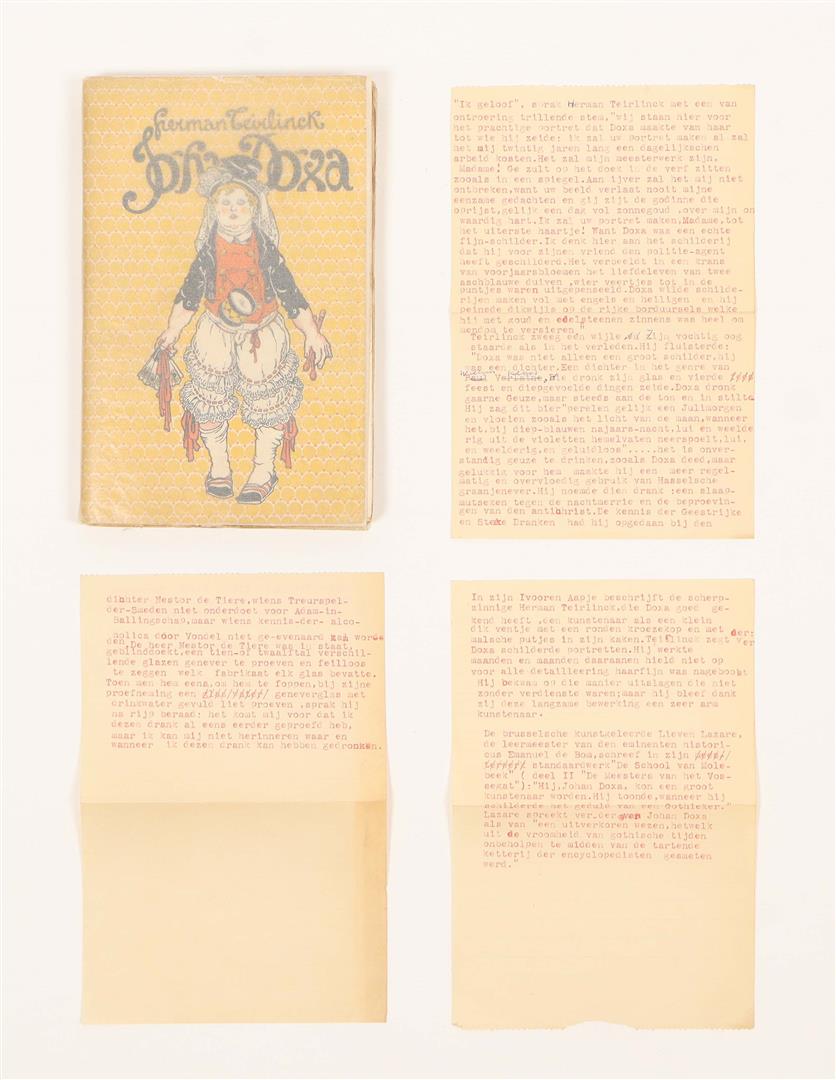 Herman Teirlinck
Johan Doxa
"Ik geloof", sprak Herman Teirlinck met een van
ontroering trillende stem,"wij staan hier voor
het prachtige portret dat Doxa maakte van haar
tot wie hij zeide: ik zal uw portret maken al zal
het mij twintig jaren lang een dagelijkschen
arbeid kosten.Het zal mijn meesterwerk zijn,
Madame! Ge zult op het doek in de verf zitten
zooals in een spiegel.Aan ijver zal het mij niet
ontbreken,want uw beeld verlaat nooit mijne
eenzame gedachten en gij zijt de godinne die
oprijst,gelijk een dag vol zonnegoud ,over mijn on
waardig hart.Ik zal uw portret maken,Madame,tot
het uiterste haartje! Want Doxa was een echte
fijn-schilder.Ik denk hier aan het schilderij
dat hij voor zijnen vriend den politie-agent
heeft geschilderd.Het verbeeldt in een krans
van voorjaarsbloemen het liefdeleven van twee
aschblauwe duiven ,wier veertjes tot in de
puntjes waren uitgepenseeld.Doxa wilde schilde-
rijen maken vol met engels en heiligen en hij
peinsde dikwijls op de rijke borduursels welke
hij met goud en edelsteenen zinnens was heel om
mendom te versieren"
Teirlinck zweeg een wijle, Zijn vochtig oog
staarde als in het verleden.Hij fluisterde:
"Doxa was niet alleen een groot schilder,hij
was een dichter.Een dichter in het genre van
Paul Verlaine, die dronk zijn glas en vierde
feest en diepgevoelde dingen zeide.Doxa dronk
gaarne Geuze,maar steeds aan de ton en in stilte
Hij zag dit bier"perelen gelijk een Julimorgen
en vloeien zooals het licht van de maan,wanneer
het,bij diep-blauwen najaars-nacht,lui en weelde
rig uit de violetten hemelvaten neerspoelt,lui,
en weelderig,en geluidloos".....het is onver-
standig geuze te drinken,zooals Doxa deed,maar
gelukkig voor hem maakte hij een meer regel-
matig en overvloedig gebruik van Hasselsche
graanjenever.Hij noemde dien drank :een slaap-
mutseken tegen de nachtmerrie en de beproevin-
gen van den antichrist.De kennis der Geestrijke
en Sterke Dranken had hij opgedaan bij den
dichter Nestor de Tiere,wiens Treurspel-
der-Smeden niet onderdoet voor Adam-in-
Ballingschap,maar wiens kennis-der- alco-
holica door Vondel niet ge-evenaard kan worde
den,De heer Nestor de Tiere was in staat,
geblinddoekt,een tien-of twaalftal verschil-
lende glazen genever te proeven en feilloos
te zeggen welk fabrikaat elk glas bevatte.
Toen men hem eens,om hem te foppen,bij zijne
proefneming een glas/water/ geneverglas met
drinkwater gevuld liet proeven ,sprak hij
na rijp beraad: het komt mij voor dat ik
dezen drank al eens eerder geproefd heb,
maar ik kan mij niet herinneren waar en
wanneer ik dezen drank kan hebben gedronken.
In zijn Ivooren Aapje beschrijft de scherp-
zinnige Herman Teirlinck,die Doxa goed ge-
kend heeft ,den kunstenaar als een klein
dik ventje met een ronden kroezekop en met
malsche putjes in zijn kaken.Teirlinck zegt ver der:
Doxa schilderde portretten.Hij werkte
maanden en maanden daaraanen hield niet op
voor alle detailleering haarfijn was nagebootst
Hij bekwam op die manier uitslagen die niet
zonder verdienste waren;maar hij bleef dank
zij deze langzame bewerking een zeer arm
kunstenaar.
De brusselsche kunstkeleerde Lieven Lazare,
de leermeester van den eminenten histori-
cus Emanuel de Bom,schreef in zijn
standaardwerk"De School van Mole-
beek" ( deel II "De Meesters van het Vos-
segat"):"Hij,Johan Doxa, kon een groot
kunstenaar worden.Hij toonde,wanneer hij
schilderde het geduld van een Gothieker."
Lazare spreekt ver.der van Johan Doxa
als van "een uitverkoren wezen,hetwelk
uit de vroomheid van gothische tijden
onbeholpen te midden van de tartende
ketterij der encyclopedisten gesmeten
werd."